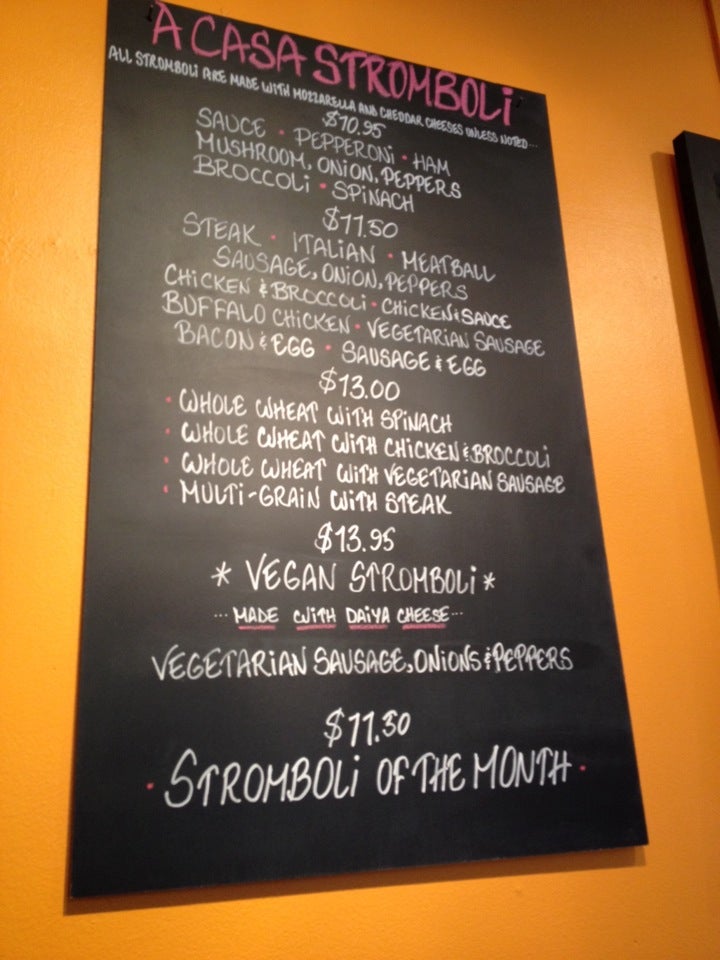 A CASA STROMBOLI
ALL STROMBOLI ARE MADE WITH MOZZARELLA AND CHEDDAR CHEESES UNLESS NOTED...
$10.95
SAUCE • PEPPERONI • HAM
MUSHROOM, ONION, PEPPERS
BROCCOLI • SPINACH
$11.50
STEAK • ITALIAN • MEATBALL
SAUSAGE, ONION, PEPPERS
CHICKEN & BROCCOLI • CHICKEN & SAUCE
BUFFALO CHICKEN • VEGETARIAN SAUSAGE
BACON & EGG • SAUSAGE & EGG
$13.00
• WHOLE WHEAT WITH SPINACH
• WHOLE WHEAT WITH CHICKEN & BROCCOLI
• WHOLE WHEAT WITH VEGETARIAN SAUSAGE
• MULTI-GRAIN WITH STEAK
$13.95
* VEGAN STROMBOLI *
... MADE WITH DAIYA CHEESE ...
VEGETARIAN SAUSAGE, ONIONS & PEPPERS
$11.50
• STROMBOLI OF THE MONTH •